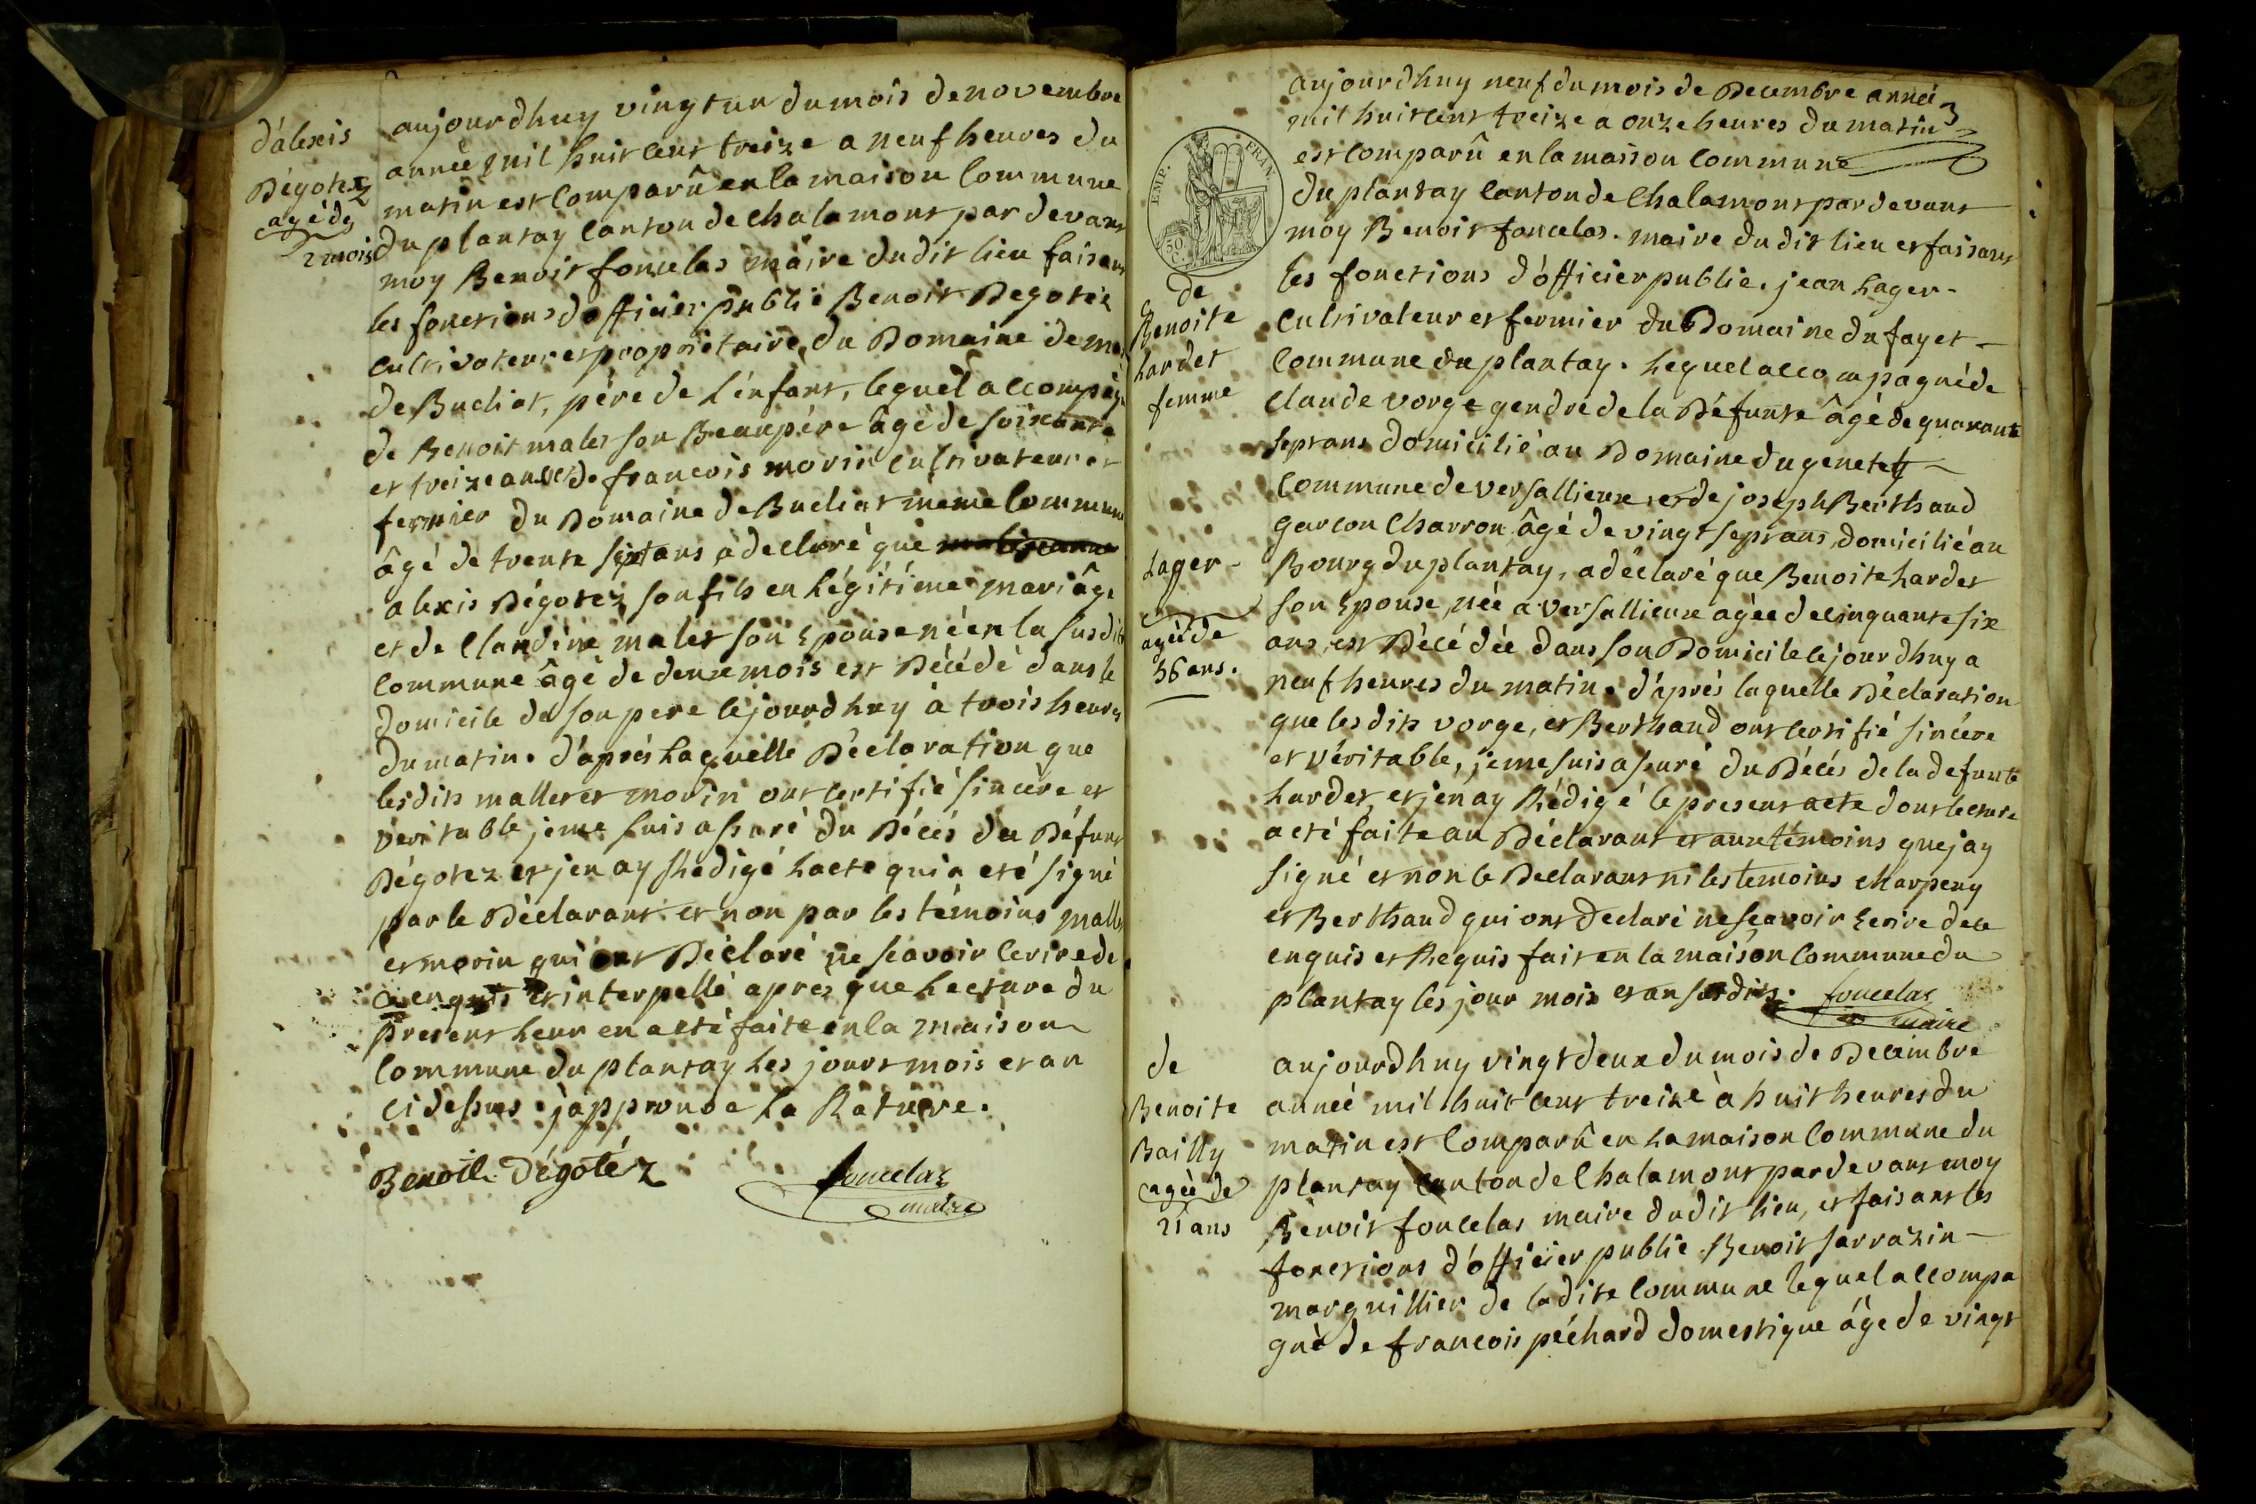 d'alexis
Dégotez
agé de
2 mois
aujourdhuy vingt un du mois de novembre
année mil huit cent treize a neuf heures du
matin est comparû en la maison commune
du plantay canton de chalamont par devant
moy Benoit foncelas maire dudit lieu faisant
les fonctions d'officier public Benoit Degotéz
cultivateur et propriétaire du Domaine de
de Budiat, pére de l'enfant, lequel accompagn
de Benoit malet son Beaupére âgé de soixante
et treize ans et de francois morin cultivateur et
fermier du Domaine de Budiat meme commune
âgé de trente sept ans à declaré que
alexis Dégotez son fils en légitime mariâge
et de Claudine malet son Epouse né en la susdite
commune âgé de deux mois est Décédé dans le
domicile de son pere cejourdhuy à trois heures
du matin. d'aprés laquelle Déclaration que
lesdits mallet et morin ont certifié sincère et
véritable, je me suis assuré du Décés du Défunt
Dégotez et jen ay Rédigé lacte qui a eté signé
par le Déclarant et non par les témoins mallet
et morin qui ont Déclaré ne scavoir ecrire de
ce enquis et interpellé apres que lecture du
present leur en a eté faite en la maison
commune du plantay les jours mois et an
ci dessus. j'approuve la Rature.
Benoit Dégotéz
foncelas
maire
EMP. FRAN.
50 C.
de
Benoite
hardet
femme
Lager
agée de
56 ans.
aujourdhuy neuf du mois de Decembre année
mil huit cent treize a onze heures du matin
est comparû en la maison commune
du plantay canton de Chalamont par devant
moy Benoit foncelas. maire dudit lieu et faisant
les fonctions d'officier public. jean Lager
cultivateur et fermier du Domaine du fayet
commune du plantay. lequel accompagné de
claude vorge gendre de la Défunte âgé de quarante
sept ans domicilié au Domaine du genetey
commune de versallieux, et de joseph Berthaud
garcon Charron âgé de vingt sept ans, domicilié au
Bourg du plantay, a déclaré que Benoite hardet
son Epouse, née a versallieux agée de cinquante six
ans, est Décédée dans son Domicile cejourdhuy a
neuf heures du matin. d'aprés laquelle Déclaration
que lesdits vorge, et Berthaud ont certifié sincére
et véritable, je me suis assuré du Décés de la defunte
hardet, et jen ay Rédigé le present acte dont lecture
a eté faite au Déclarant et aux témoins que jay
signé et non le Declarant ni les temoins charpeny
et Berthaud qui ont declaré ne scavoir Ecrire de ce
enquis et Requis fait en la maison commune du
plantay les jour mois et an susdits. foncelas
maire
de
Benoite
Bailly
agée de
21 ans
aujourdhuy vingt deux du mois de Decembre
année mil huit cent treize à huit heures du
matin est comparû en la maison commune du
plantay canton de Chalamont par devant moy
Benoit foncelas maire dudit lieu, et faisant les
fonctions d'officier public Benoit sarrazin
marguillier de ladite commune lequel accompa
gné de francois péchard domestique âge de vingt